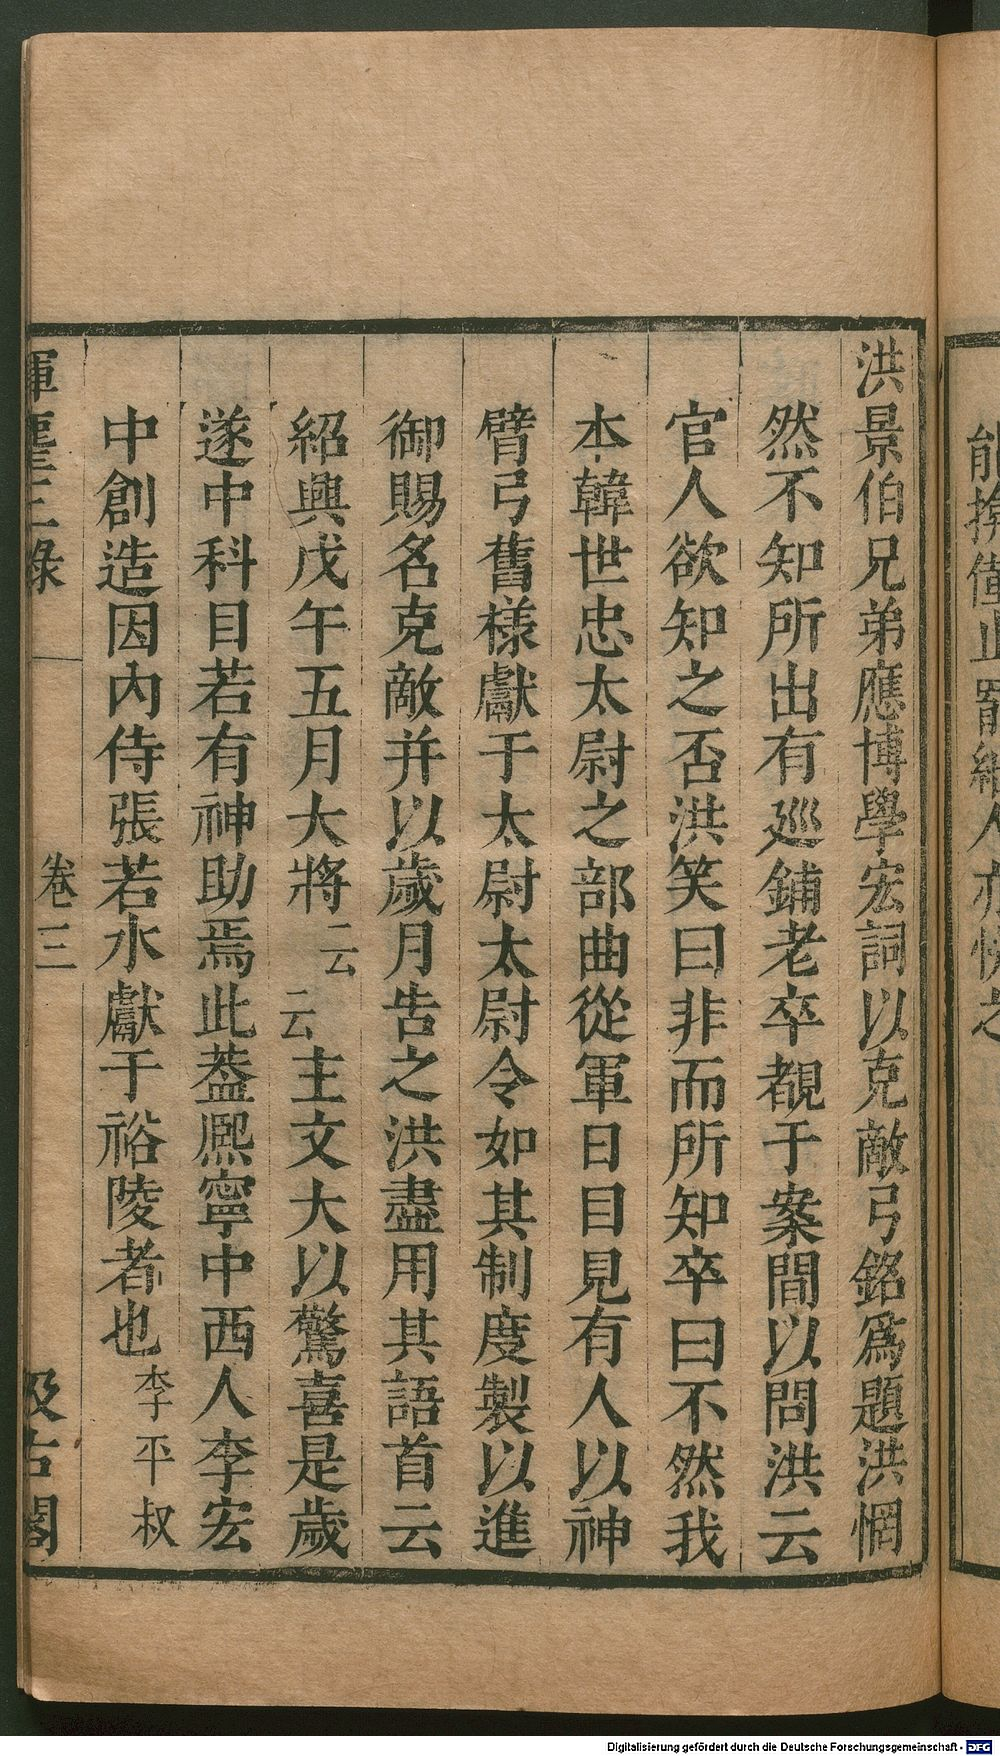 洪景伯兄弟應博學宏詞以克敵弓銘爲題洪惘
然不知所出有廵鋪老卒覩于案間以問洪云
官人欲知之否洪笑曰非而所知卒曰不然我
本韓世忠太尉之部曲從軍日目見有人以神
臂弓舊様獻于太尉太尉令如其制度製以進
御賜名克敵并以歲月告之洪盡用其語首云
紹興戊午五月大將云云主文大以驚喜是歲
遂中科目若有神助焉此葢熈寧中西人李宏
中創造因內侍張若水獻于裕陵者也李平叔
揮麈三錄 卷三 汲古閣
Digitalisierung gefördert durch die Deutsche Forschungsgemeinschaft - DFG